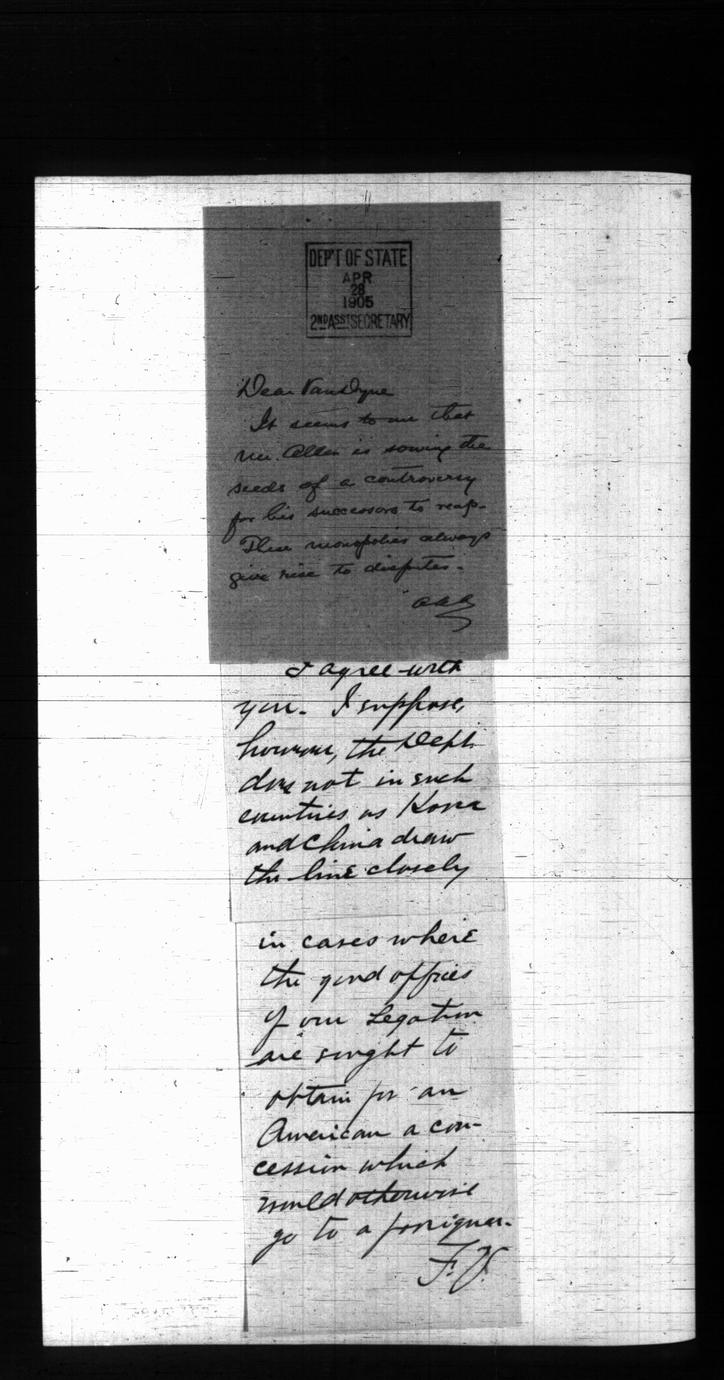 DEP'T OF STATE
APR
28
1905
2ND ASS'T SECRETARY
Dear Van Dyne
It seems to me that
Mr. Allen is sowing the
seeds of a controversy
for his successors to reap.
These monopolies always
give rise to disputes.
AAA
I agree with
you. I suppose,
however, the Dept.
does not in such
countries as Korea
and China draw
the line closely
in cases where
the good offices
of our Legation
are sought to
obtain for an
American a con-
cession which
would otherwise
go to a foreigner.
F.V.